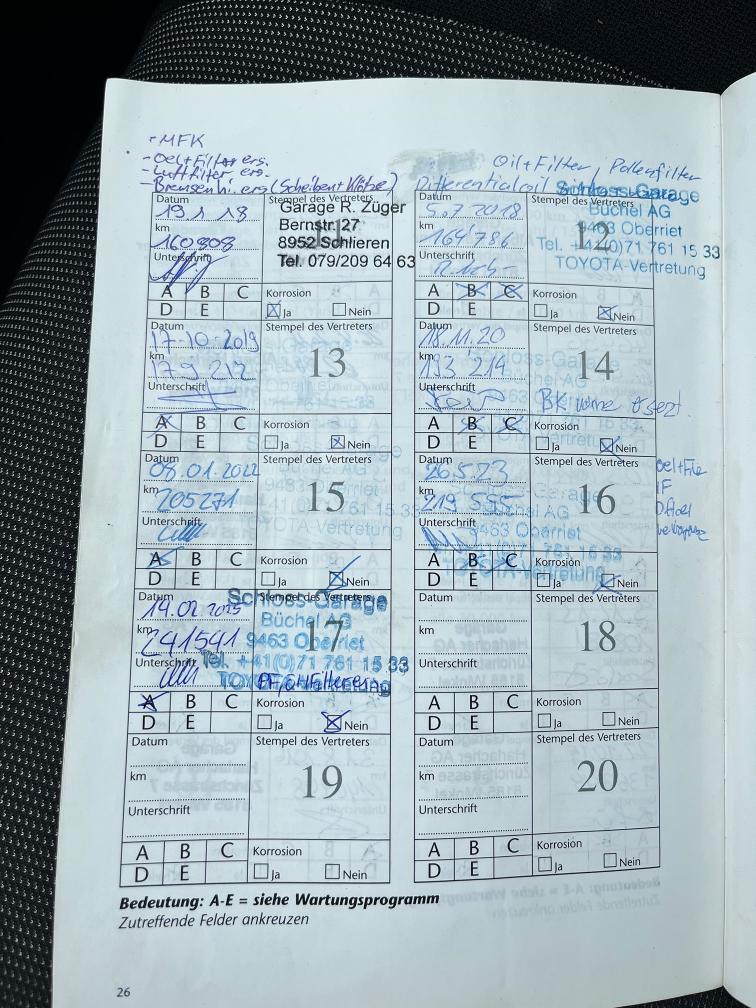 - MFK
- Oel+Filter ers.
- Luftfilter ers.
- Bremsen hi ers (Scheiben+Klötze)
Oil+Filter, Pollenfilter
Differentialoil
Datum
19 1 18
km
160808
Unterschrift
Stempel des Vertreters
11
Garage R. Züger
Bernstr. 27
8952 Schlieren
Tel. 079/209 64 63
A B C
D E
Korrosion
Ja Nein
Datum
5.7.2018
km
164'786
Unterschrift
12
Schloss-Garage
Büchel AG
9463 Oberriet
Tel. +41(0)71 761 15 33
TOYOTA-Vertretung
A B C
D E
Korrosion
Ja Nein
Datum
17-10-2019
km
179 212
Unterschrift
Stempel des Vertreters
13
A B C
D E
Korrosion
Ja Nein
Datum
18.11.20
km
193'214
Unterschrift
Stempel des Vertreters
14
Schloss-Garage
Büchel AG
BK vorne
A B C
D E
Korrosion
Ja Nein
Datum
08.01.2022
km
205271
Unterschrift
Stempel des Vertreters
15
A B C
D E
Korrosion
Ja Nein
Datum
26.5.23
km
219 555
Unterschrift
Stempel des Vertreters
16
Schloss-Garage
Büchel AG
9463 Oberriet
TOYOTA-Vertretung
A B C
D E
Korrosion
Ja Nein
Datum
14.02.2025
km
241541
Unterschrift
Stempel des Vertreters
17
Schloss-Garage
Büchel AG
9463 Oberriet
Tel. +41(0)71 761 15 33
TOYOTA-Vertretung
A B C
D E
Korrosion
Ja Nein
Datum
km
Unterschrift
Stempel des Vertreters
18
A B C
D E
Korrosion
Ja Nein
Datum
km
Unterschrift
Stempel des Vertreters
19
A B C
D E
Korrosion
Ja Nein
Datum
km
Unterschrift
Stempel des Vertreters
20
A B C
D E
Korrosion
Ja Nein
Bedeutung: A-E = siehe Wartungsprogramm
Zutreffende Felder ankreuzen
26